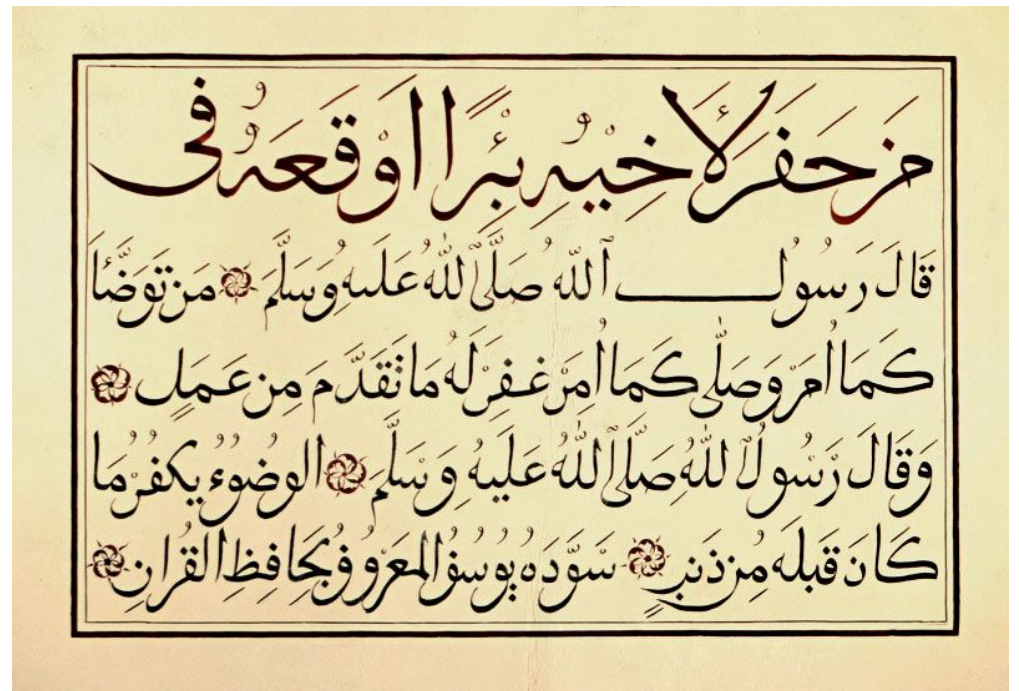 مَن حَفَرَ لأَخِيْهِ بِئْرًا اَوْقَعَهُ فى
قَالَ رَسُولُ ٱللّه صَلَّى ٱللّٰهُ عَليهِ وَسَلَّمَ مَن تَوَضَّأَ
كَمَا اُمرْ وَصَلّٰى كَمَا اُمِرْ غُفِرَ لَهُ مَا تَقَدَّمَ مِن عَمَلٍ
وَقَالَ رَسُولُ اللّٰهِ صَلَّى اللّٰهُ عَلَيْهِ وَسَلَّمَ الوُضُوءُ يكفرُ مَا
كَانَ قَبلَه مِن ذَنبٍ سَوَّدَهُ يُوسُفُ المَعرُوفُ بحَافِظِ القُرانِ